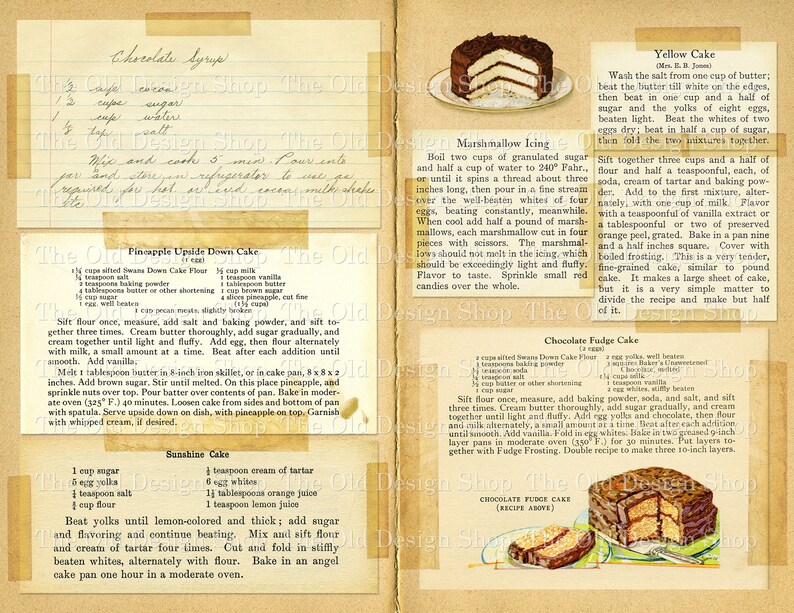 Chocolate Syrup
½ cups cocoa
1½ cups sugar
1 cup water
⅛ tsp salt
Mix and cook 5 min. Pour into
jar and store in refrigerator to use as
required for hot or iced cocoa, milk shake
etc
Pineapple Upside Down Cake
(1 egg)
1¼ cups sifted Swans Down Cake Flour
¼ teaspoon salt
2 teaspoons baking powder
4 tablespoons butter or other shortening
½ cup sugar
1 egg, well beaten
½ cup milk
1 teaspoon vanilla
1 tablespoon butter
1 cup brown sugar
4 slices pineapple, cut fine
(1½ cups)
1 cup pecan meats, slightly broken
Sift flour once, measure, add salt and baking powder, and sift to-
gether three times. Cream butter thoroughly, add sugar gradually, and
cream together until light and fluffy. Add egg, then flour alternately
with milk, a small amount at a time. Beat after each addition until
smooth. Add vanilla.
Melt 1 tablespoon butter in 8-inch iron skillet, or in cake pan, 8 x 8 x 2
inches. Add brown sugar. Stir until melted. On this place pineapple, and
sprinkle nuts over top. Pour batter over contents of pan. Bake in moder-
ate oven (325° F.) 40 minutes. Loosen cake from sides and bottom of pan
with spatula. Serve upside down on dish, with pineapple on top. Garnish
with whipped cream, if desired.
Sunshine Cake
1 cup sugar
5 egg yolks
¼ teaspoon salt
¾ cup flour
½ teaspoon cream of tartar
6 egg whites
1½ tablespoons orange juice
1 teaspoon lemon juice
Beat yolks until lemon-colored and thick; add sugar
and flavoring and continue beating. Mix and sift flour
and cream of tartar four times. Cut and fold in stiffly
beaten whites, alternately with flour. Bake in an angel
cake pan one hour in a moderate oven.
Marshmallow Icing
Boil two cups of granulated sugar
and half a cup of water to 240° Fahr.,
or until it spins a thread about three
inches long, then pour in a fine stream
over the well-beaten whites of four
eggs, beating constantly, meanwhile.
When cool add half a pound of marsh-
mallows, each marshmallow cut in four
pieces with scissors. The marshmal-
lows should not melt in the icing, which
should be exceedingly light and fluffy.
Flavor to taste. Sprinkle small red
candies over the whole.
Yellow Cake
(Mrs. E. B. Jones)
Wash the salt from one cup of butter;
beat the butter till white on the edges,
then beat in one cup and a half of
sugar and the yolks of eight eggs,
beaten light. Beat the whites of two
eggs dry; beat in half a cup of sugar,
then fold the two mixtures together.
Sift together three cups and a half of
flour and half a teaspoonful, each, of
soda, cream of tartar and baking pow-
der. Add to the first mixture, alter-
nately, with one cup of milk. Flavor
with a teaspoonful of vanilla extract or
a tablespoonful or two of preserved
orange peel, grated. Bake in a pan nine
and a half inches square. Cover with
boiled frosting. This is a very tender,
fine-grained cake, similar to pound
cake. It makes a large sheet of cake,
but it is a very simple matter to
divide the recipe and make but half
of it.
Chocolate Fudge Cake
(2 eggs)
2 cups sifted Swans Down Cake Flour
1 teaspoon baking powder
½ teaspoon soda
¼ teaspoon salt
½ cup butter or other shortening
1 cup sugar
2 egg yolks, well beaten
squares Baker's Unsweetened
Chocolate, melted
1¼ cups milk
1 teaspoon vanilla
2 egg whites, stiffly beaten
Sift flour once, measure, add baking powder, soda, and salt, and sift
three times. Cream butter thoroughly, add sugar gradually, and cream
together until light and fluffy. Add egg yolks and chocolate, then flour
and milk alternately, a small amount at a time. Beat after each addition
until smooth. Add vanilla. Fold in egg whites. Bake in two greased 9-inch
layer pans in moderate oven (350° F.) for 30 minutes. Put layers to-
gether with Fudge Frosting. Double recipe to make three 10-inch layers.
CHOCOLATE FUDGE CAKE
(RECIPE ABOVE)
The Old Design Shop